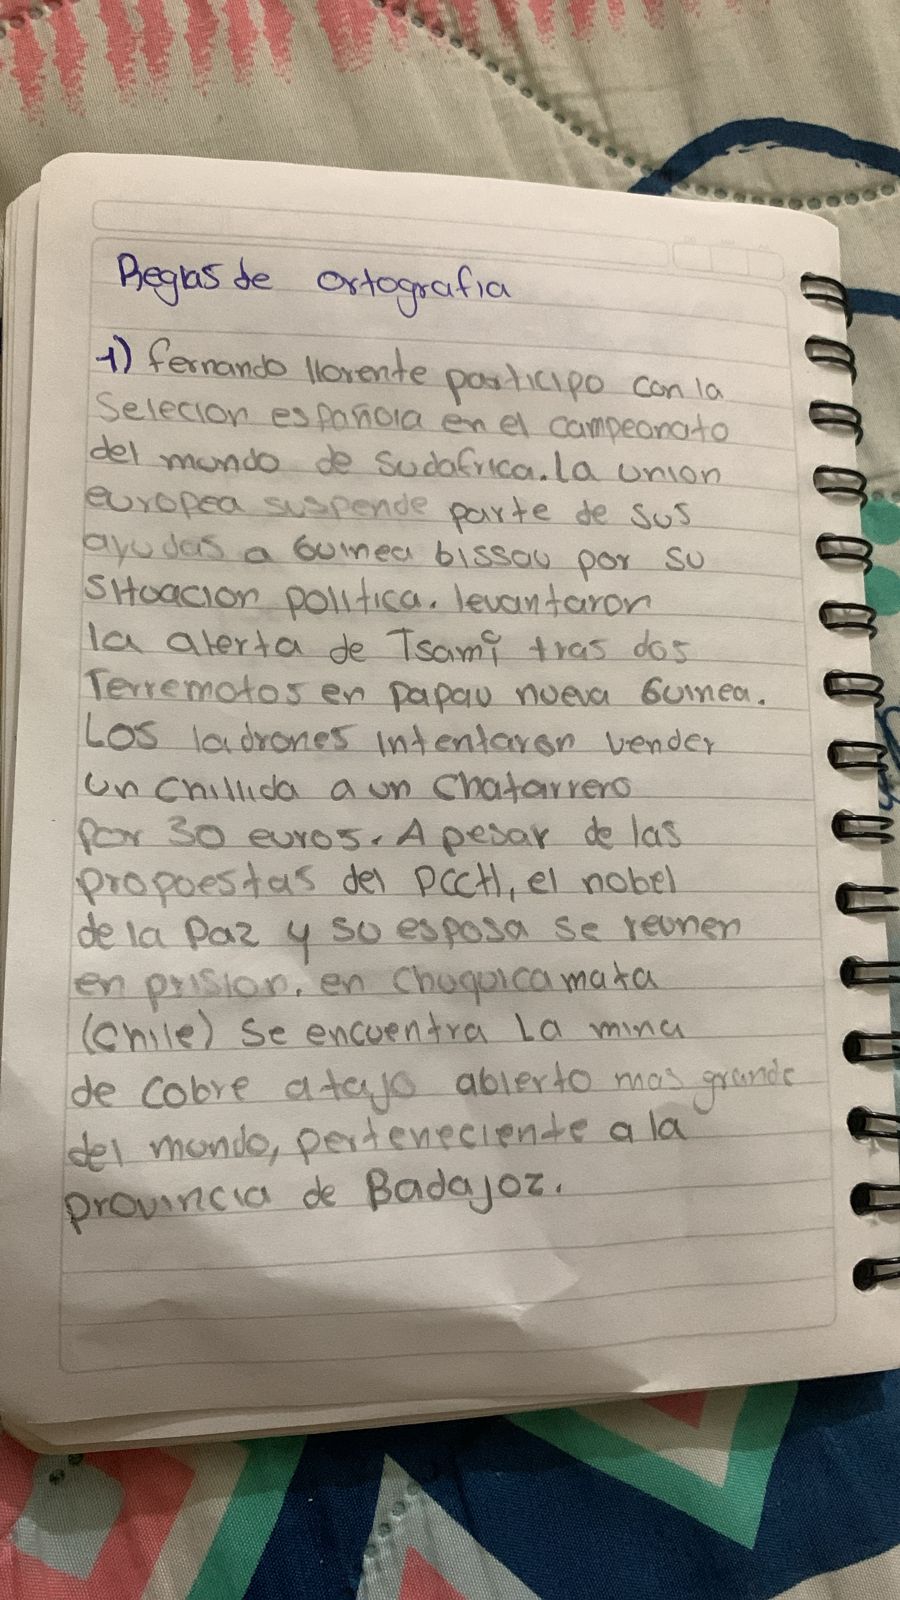 Reglas de ortografia
1) fernando llorente participo con la
Selecion española en el campeonato
del mundo de Sudafrica. la union
europea suspende parte de sus
ayudas a Guinea bissau por su
situacion politica. levantaron
la alerta de Tsami tras dos
Terremotos en papau nueva Guinea.
Los ladrones intentaron vender
un chillida a un chatarrero
por 30 euros. A pesar de las
propoestas del PCCH, el nobel
de la Paz y su esposa se reunen
en prision. en Chuquicamata
(Chile) se encuentra La mina
de cobre a tajo abierto mas grande
del mundo, perteneciente a la
provincia de Badajoz.